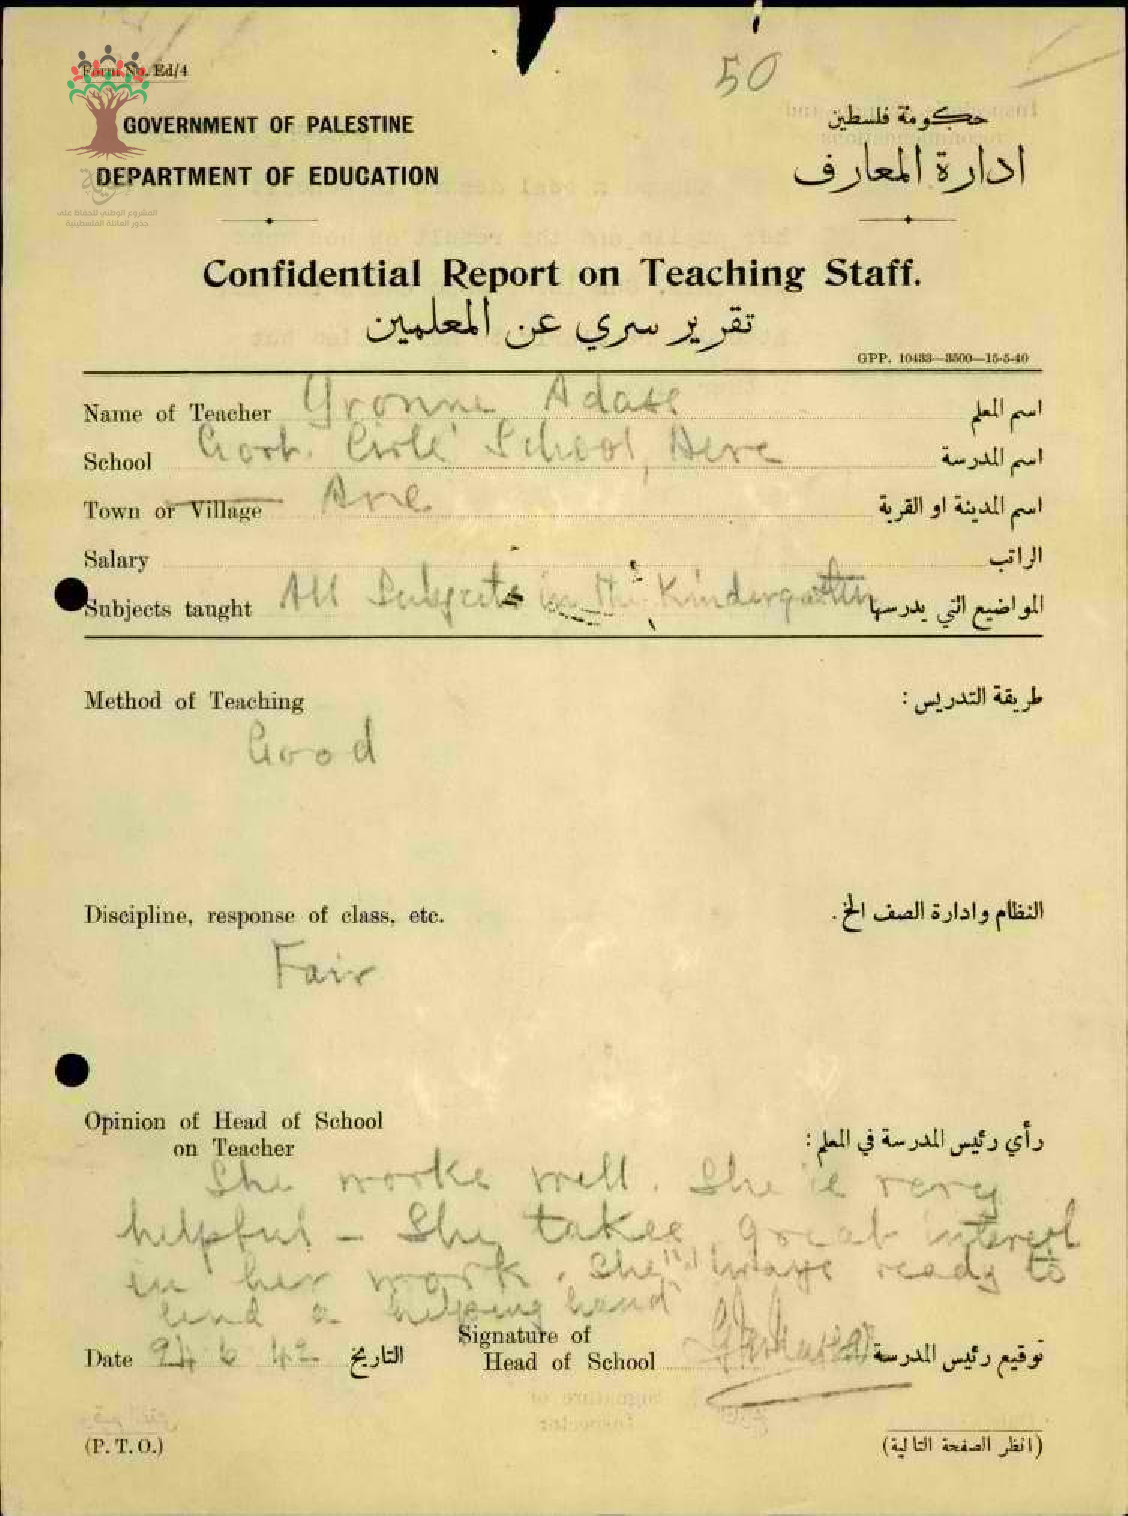 50
Form No. Ed/4
GOVERNMENT OF PALESTINE
حكومة فلسطين
DEPARTMENT OF EDUCATION
ادارة المعارف
المشروع الوطني للحفاظ على
جذور العائلة الفلسطينية
Confidential Report on Teaching Staff.
تقرير سري عن المعلمين
GPP. 10433—3500—15-5-40
Name of Teacher Yvonne اسم المعلم
School Govt. Girls' School, Acre اسم المدرسة
Town or Village Acre اسم المدينة او القرية
Salary الراتب
Subjects taught All Subjects in the Kindergarten المواضيع التي يدرسها
Method of Teaching طريقة التدريس :
Good
Discipline, response of class, etc. النظام وادارة الصف الخ.
Fair
Opinion of Head of School
on Teacher رأي رئيس المدرسة في المعلم :
She works well. She is very
helpful – She takes great interest
in her work. She "always ready to
lend a helping hand"
Date 24 6 42 التاريخ Signature of
Head of School توقيع رئيس المدرسة
(P. T. O.) (انظر الصفحة التالية)